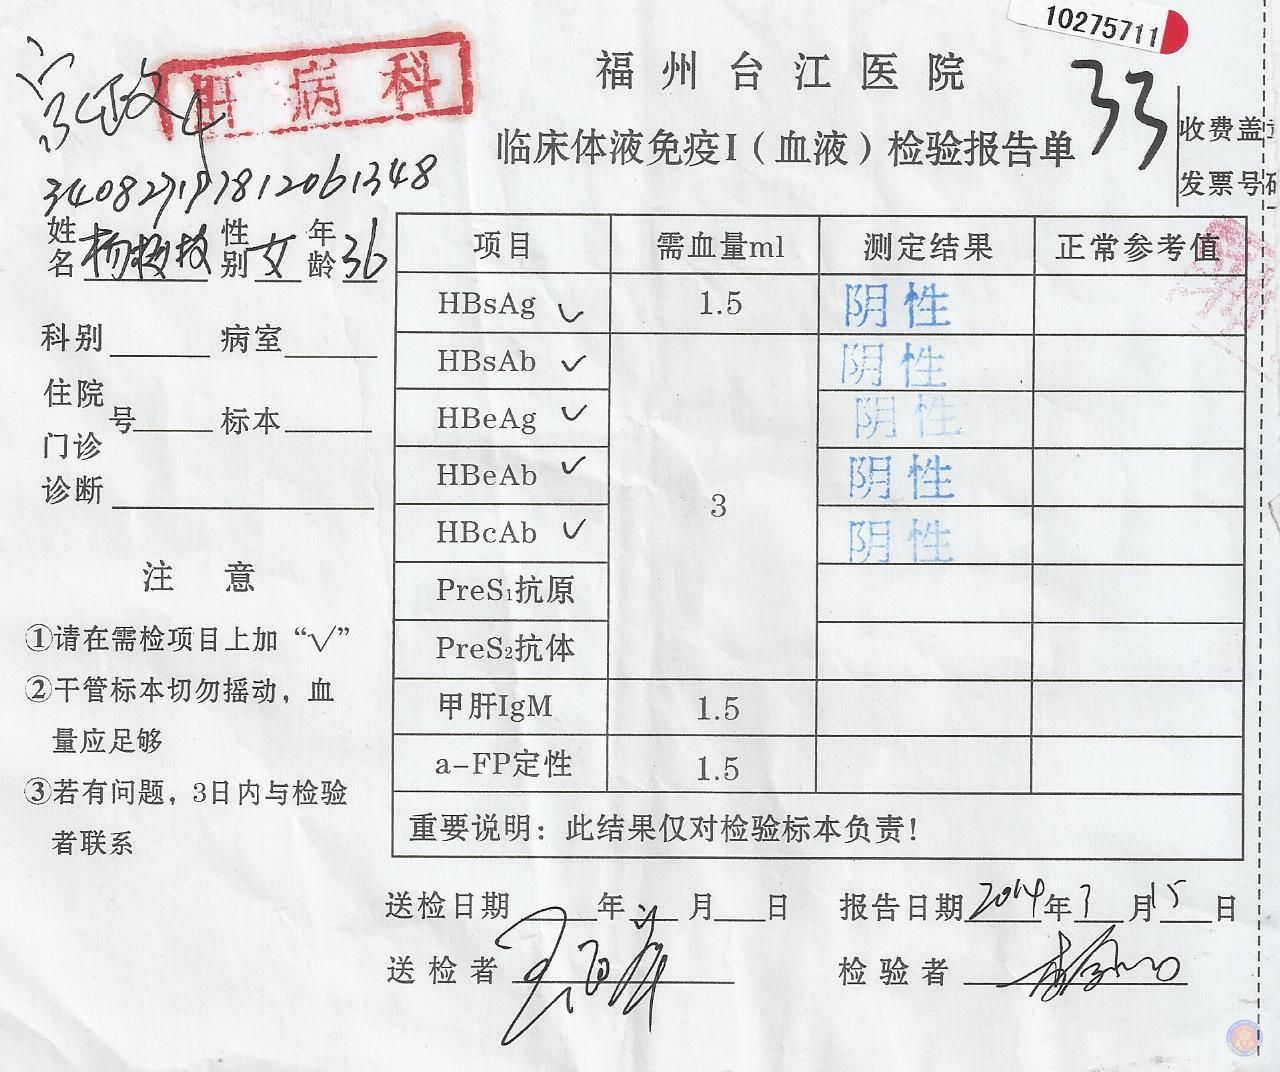 10275711
福州台江医院
33
肝病科
临床体液免疫I（血液）检验报告单
收费盖
发票号码
姓名 性别 女 年龄 36
科别 病室
住院
门诊 号 标本
诊断
注 意
①请在需检项目上加“√”
②干管标本切勿摇动，血
量应足够
③若有问题，3日内与检验
者联系
项目 需血量ml 测定结果 正常参考值
HBsAg ✓ 1.5 阴性
HBsAb ✓ 阴性
HBeAg ✓ 阴性
HBeAb ✓ 3 阴性
HBcAb ✓ 阴性
PreS₁抗原
PreS₂抗体
甲肝IgM 1.5
a-FP定性 1.5
重要说明：此结果仅对检验标本负责！
送检日期 年 月 日 报告日期 2014年3月15日
送检者 检验者